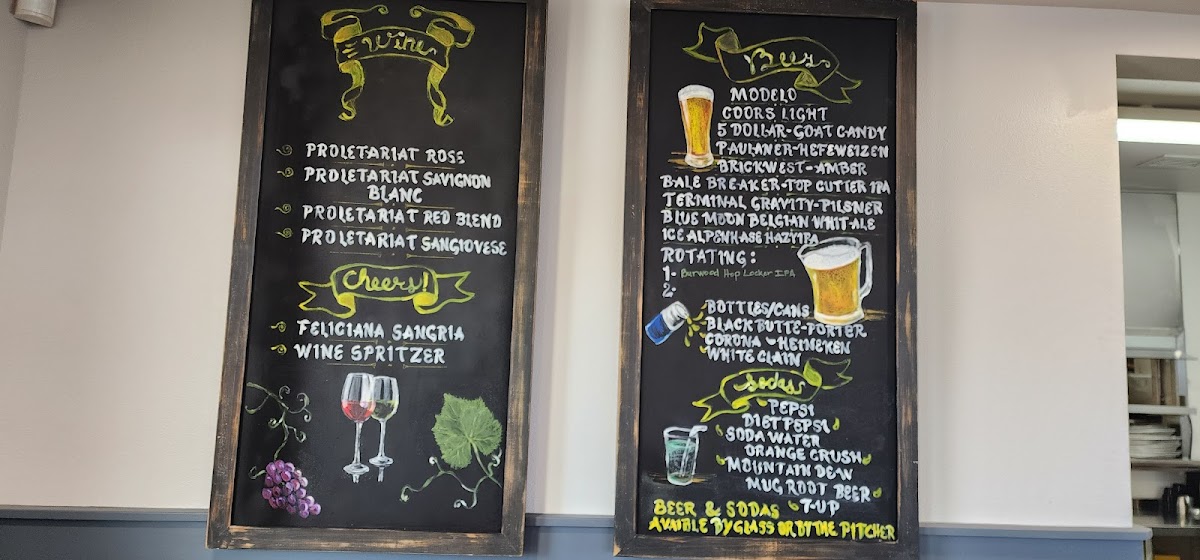 Wine
PROLETARIAT ROSE
PROLETARIAT SAVIGNON
BLANC
PROLETARIAT RED BLEND
PROLETARIAT SANGIOVESE
Cheers!
FELICIANA SANGRIA
WINE SPRITZER
Beer
MODELO
COORS LIGHT
5 DOLLAR-GOAT CANDY
PAULANER-HEFEWEIZEN
BRICKWEST-AMBER
BALE BREAKER-TOP CUTTER IPA
TERMINAL GRAVITY-PILSNER
BLUE MOON BELGIAN WHIT-ALE
ICE ALPENHASE HAZY IPA
ROTATING:
1- Burwood Hop Locker IPA
2-
BOTTLES/CANS
BLACK BUTTE-PORTER
CORONA - HEINEKEN
WHITE CLAIN
Sodas
PEPSI
DIET PEPSI
SODA WATER
ORANGE CRUSH
MOUNTAIN DEW
MUG ROOT BEER
7-UP
BEER & SODAS
AVAIBLE BY GLASS OR BY THE PITCHER